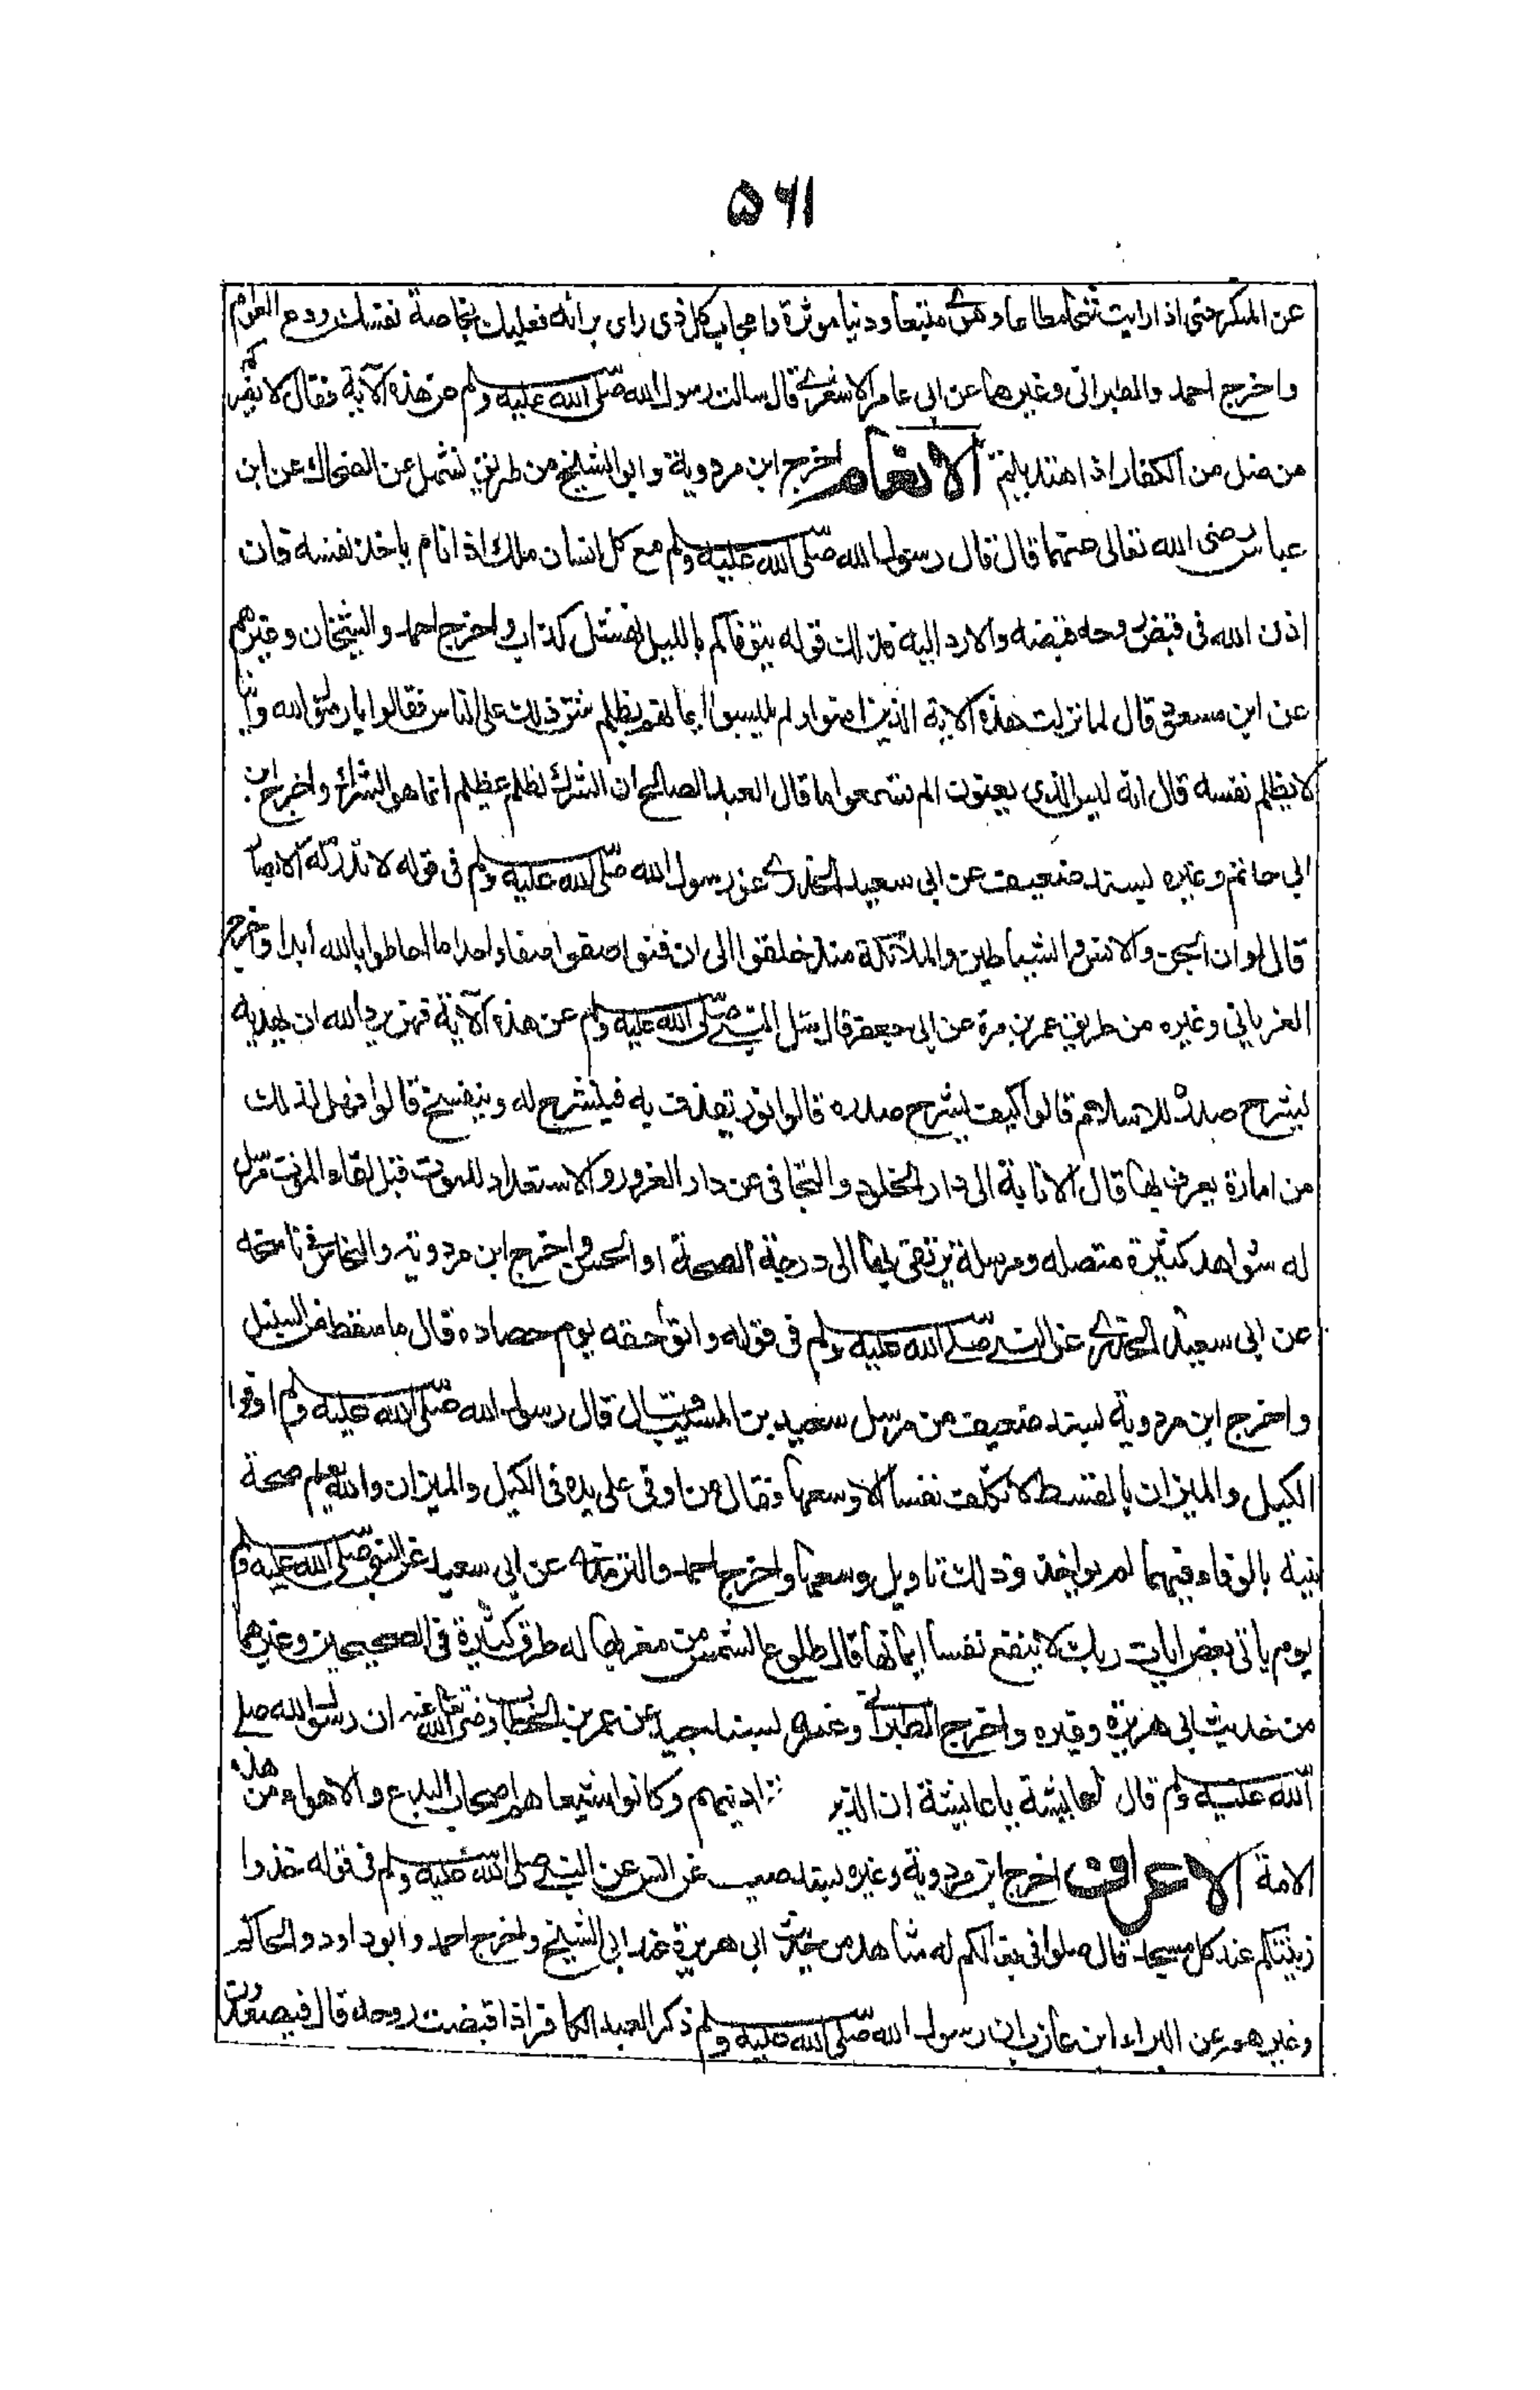 ۵۶۱
عن المنكر حتى اذا رايت شحا مطاعا و هوى متبعا و دنيا موثرة و اعجاب كل ذى راى برائه فعليك بخاصة نفسك و دع العوام
واخرج احمد والطبرانى وغيرهما عن ابى عامر الاشعرى قال سالت رسول الله صلى الله عليه ولم عن هذه الآية فقال لا يضركم
من ضل من الكفار اذا اهتديتم الانعام اخرج ابن مردوية وابو الشيخ من طريق نهشل عن الضحاك عن ابن
عباس رضى الله تعالى عنهما قال قال رسول الله صلى الله عليه ولم مع كل انسان ملك اذا نام ياخذ نفسه فان
اذن الله فى قبض روحه قبضه والا رد اليه فذلك قوله يتوفاكم بالليل نهشل كذاب واخرج احمد والشيخان وغيرهم
عن ابن مسعود قال لما نزلت هذه الاية الذين امنوا ولم يلبسوا ايمانهم بظلم شق ذلك على الناس فقالوا يا رسول الله واينا
لا يظلم نفسه قال انه ليس الذى يعنون الم تسمعوا ما قال العبد الصالح ان الشرك لظلم عظيم انما هو الشرك واخرج ابن
ابي حاتم وغيره بسند ضعيف عن ابى سعيد الخدرى عن رسول الله صلى الله عليه ولم فى قوله لا تدركه الابصار
قال لو ان الجن والانس والشياطين والملائكة منذ خلقوا الى ان فنوا صفوا صفا واحدا ما احاطوا بالله ابدا واخرج
الفريابي وغيره من طريق عمر بن مرة عن ابى جعفر قال سئل النبى صلى الله عليه ولم عن هذه الآية فمن يرد الله ان يهديه
يشرح صدره للاسلام قالوا كيف يشرح صدره قالوا نور يقذف به فينشرح له وينفسخ قالوا فهل لذلك
من امارة يعرف بها قال الانابة الى دار الخلود والتجافى عن دار الغرور والاستعداد للموت قبل لقاء الموت مرسل
له شواهد كثيرة متصله ومرسلة يرتقى بها الى درجة الصحة او الحسن واخرج ابن مردوية والنحاس فى ناسخه
عن ابى سعيد الخدرى عن النبى صلى الله عليه ولم فى قوله واتوا حقه يوم حصاده قال ما سقط من السنبل
واخرج ابن مردوية بسند ضعيف من مرسل سعيد بن المسيب قال قال رسول الله صلى الله عليه ولم اوفوا
الكيل والميزان بالقسط لا نكلف نفسا الا وسعها فقال من اوفى على يده فى الكيل والميزان والله يعلم صحة
نيته بالوفاء فيهما لم يواخذ وذلك تاويل وسعها واخرج احمد والترمذى عن ابى سعيد عن النبى صلى الله عليه ولم
يوم ياتى بعض ايات ربك لا ينفع نفسا ايمانها قال طلوع الشمس من مغربها له طرق كثيرة فى الصحيحين وغيرهما
من حديث ابى هريرة وغيره واخرج الطبرانى وغيره بسند جيد عن عمر بن الخطاب رضى الله تعالى عنه ان رسول الله صلى
الله عليه ولم قال لعايشة يا عايشة ان الذين دينهم وكانوا شيعا هم اصحاب البدع والاهواء من هذه
الامة الاعراف اخرج ابن مردوية وغيره بسند ضعيف عن انس عن النبى صلى الله عليه ولم فى قوله خذوا
زينتكم عند كل مسجد قال صلوا فى نعالكم له شاهد من حديث ابى هريرة عند ابى الشيخ واخرج احمد وابو داود والحاكم
وغيرهم عن البراء ابن عازب ان رسول الله صلى الله عليه ولم ذكر العبد الكافر اذا قبضت روحه قال فيصعدون